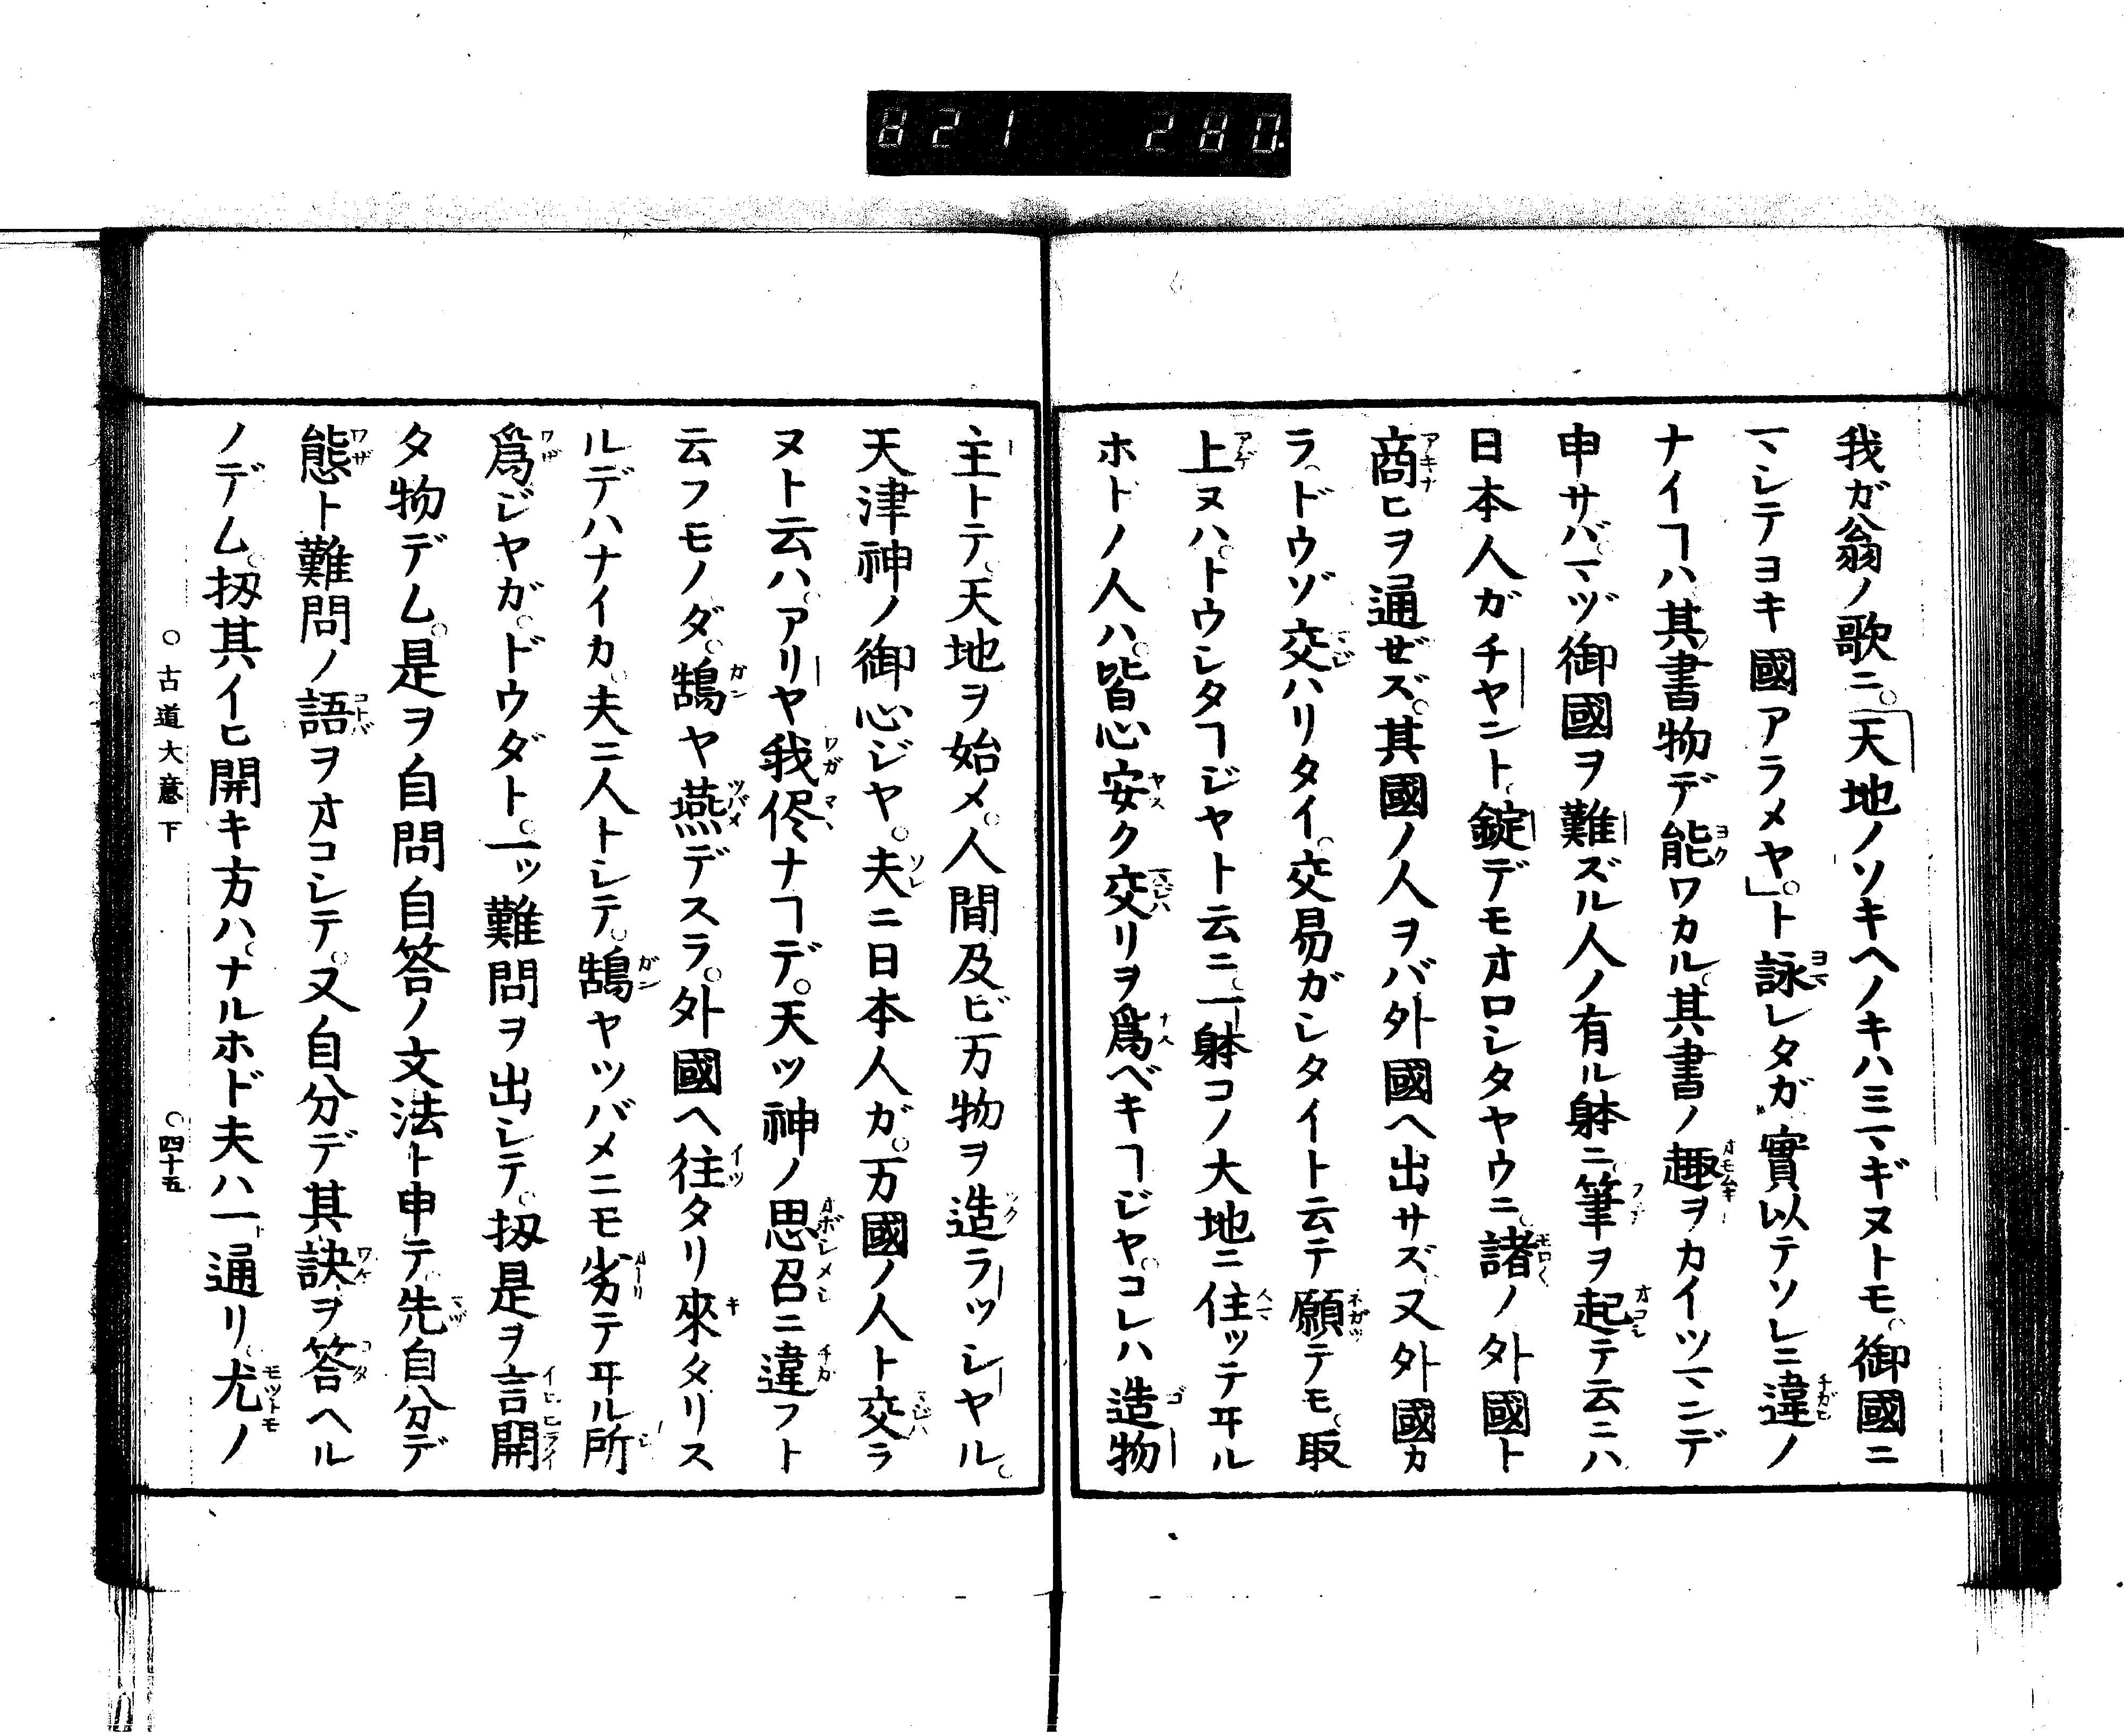 821 280
我ガ翁ノ歌ニ。「天地ノソキヘノキハミマギヌトモ。御國ニ
マシテヨキ國アラメヤ」。ト詠レタガ。實以テソレニ違ノ
ナイヿハ其書物デ能ワカル。其書ノ趣ヲカイツマンデ
申サバ。マヅ御國ヲ難ズル人ノ有ル躰ニ。筆ヲ起テ云ニハ
日本人ガチヤント。錠デモオロシタヤウニ。諸ノ外國ト
商ヒヲ通ぜズ。其國ノ人ヲバ外國ヘ出サズ。又外國カ
ラ。ドウゾ交ハリタイ。交易ガシタイト云テ願テモ。取
上ヌハ。トウシタヿジヤト云ニ。一躰コノ大地ニ住ッテヰル
ホドノ人ハ。皆心安ク交リヲ爲ベキヿジヤ。コレハ造物
主トテ。天地ヲ始メ。人間及ビ万物ヲ造ラッシヤル。
天津神ノ御心ジヤ。夫ニ日本人ガ。万國ノ人ト交ラ
ヌト云ハ。アリヤ我侭ナヿデ。天ツ神ノ思召ニ違フト
云フモノダ。鵠ヤ燕デスラ。外國ヘ往タリ來タリス
ルデハナイカ。夫ニ人トシテ。鵠ヤツバメニモ劣テヰル所
爲ジヤガ。ドウダト。一ッ難問ヲ出シテ。扨是ヲ言開
タ物デム。是ヲ自問自答ノ文法ト申テ。先自分デ
態ト難問ノ語ヲオコシテ。又自分デ其訣ヲ答ヘル
ノデム。扨其イヒ開キ方ハ。ナルホド夫ハ一通リ。尤ノ
○古道大意下 ○四十五